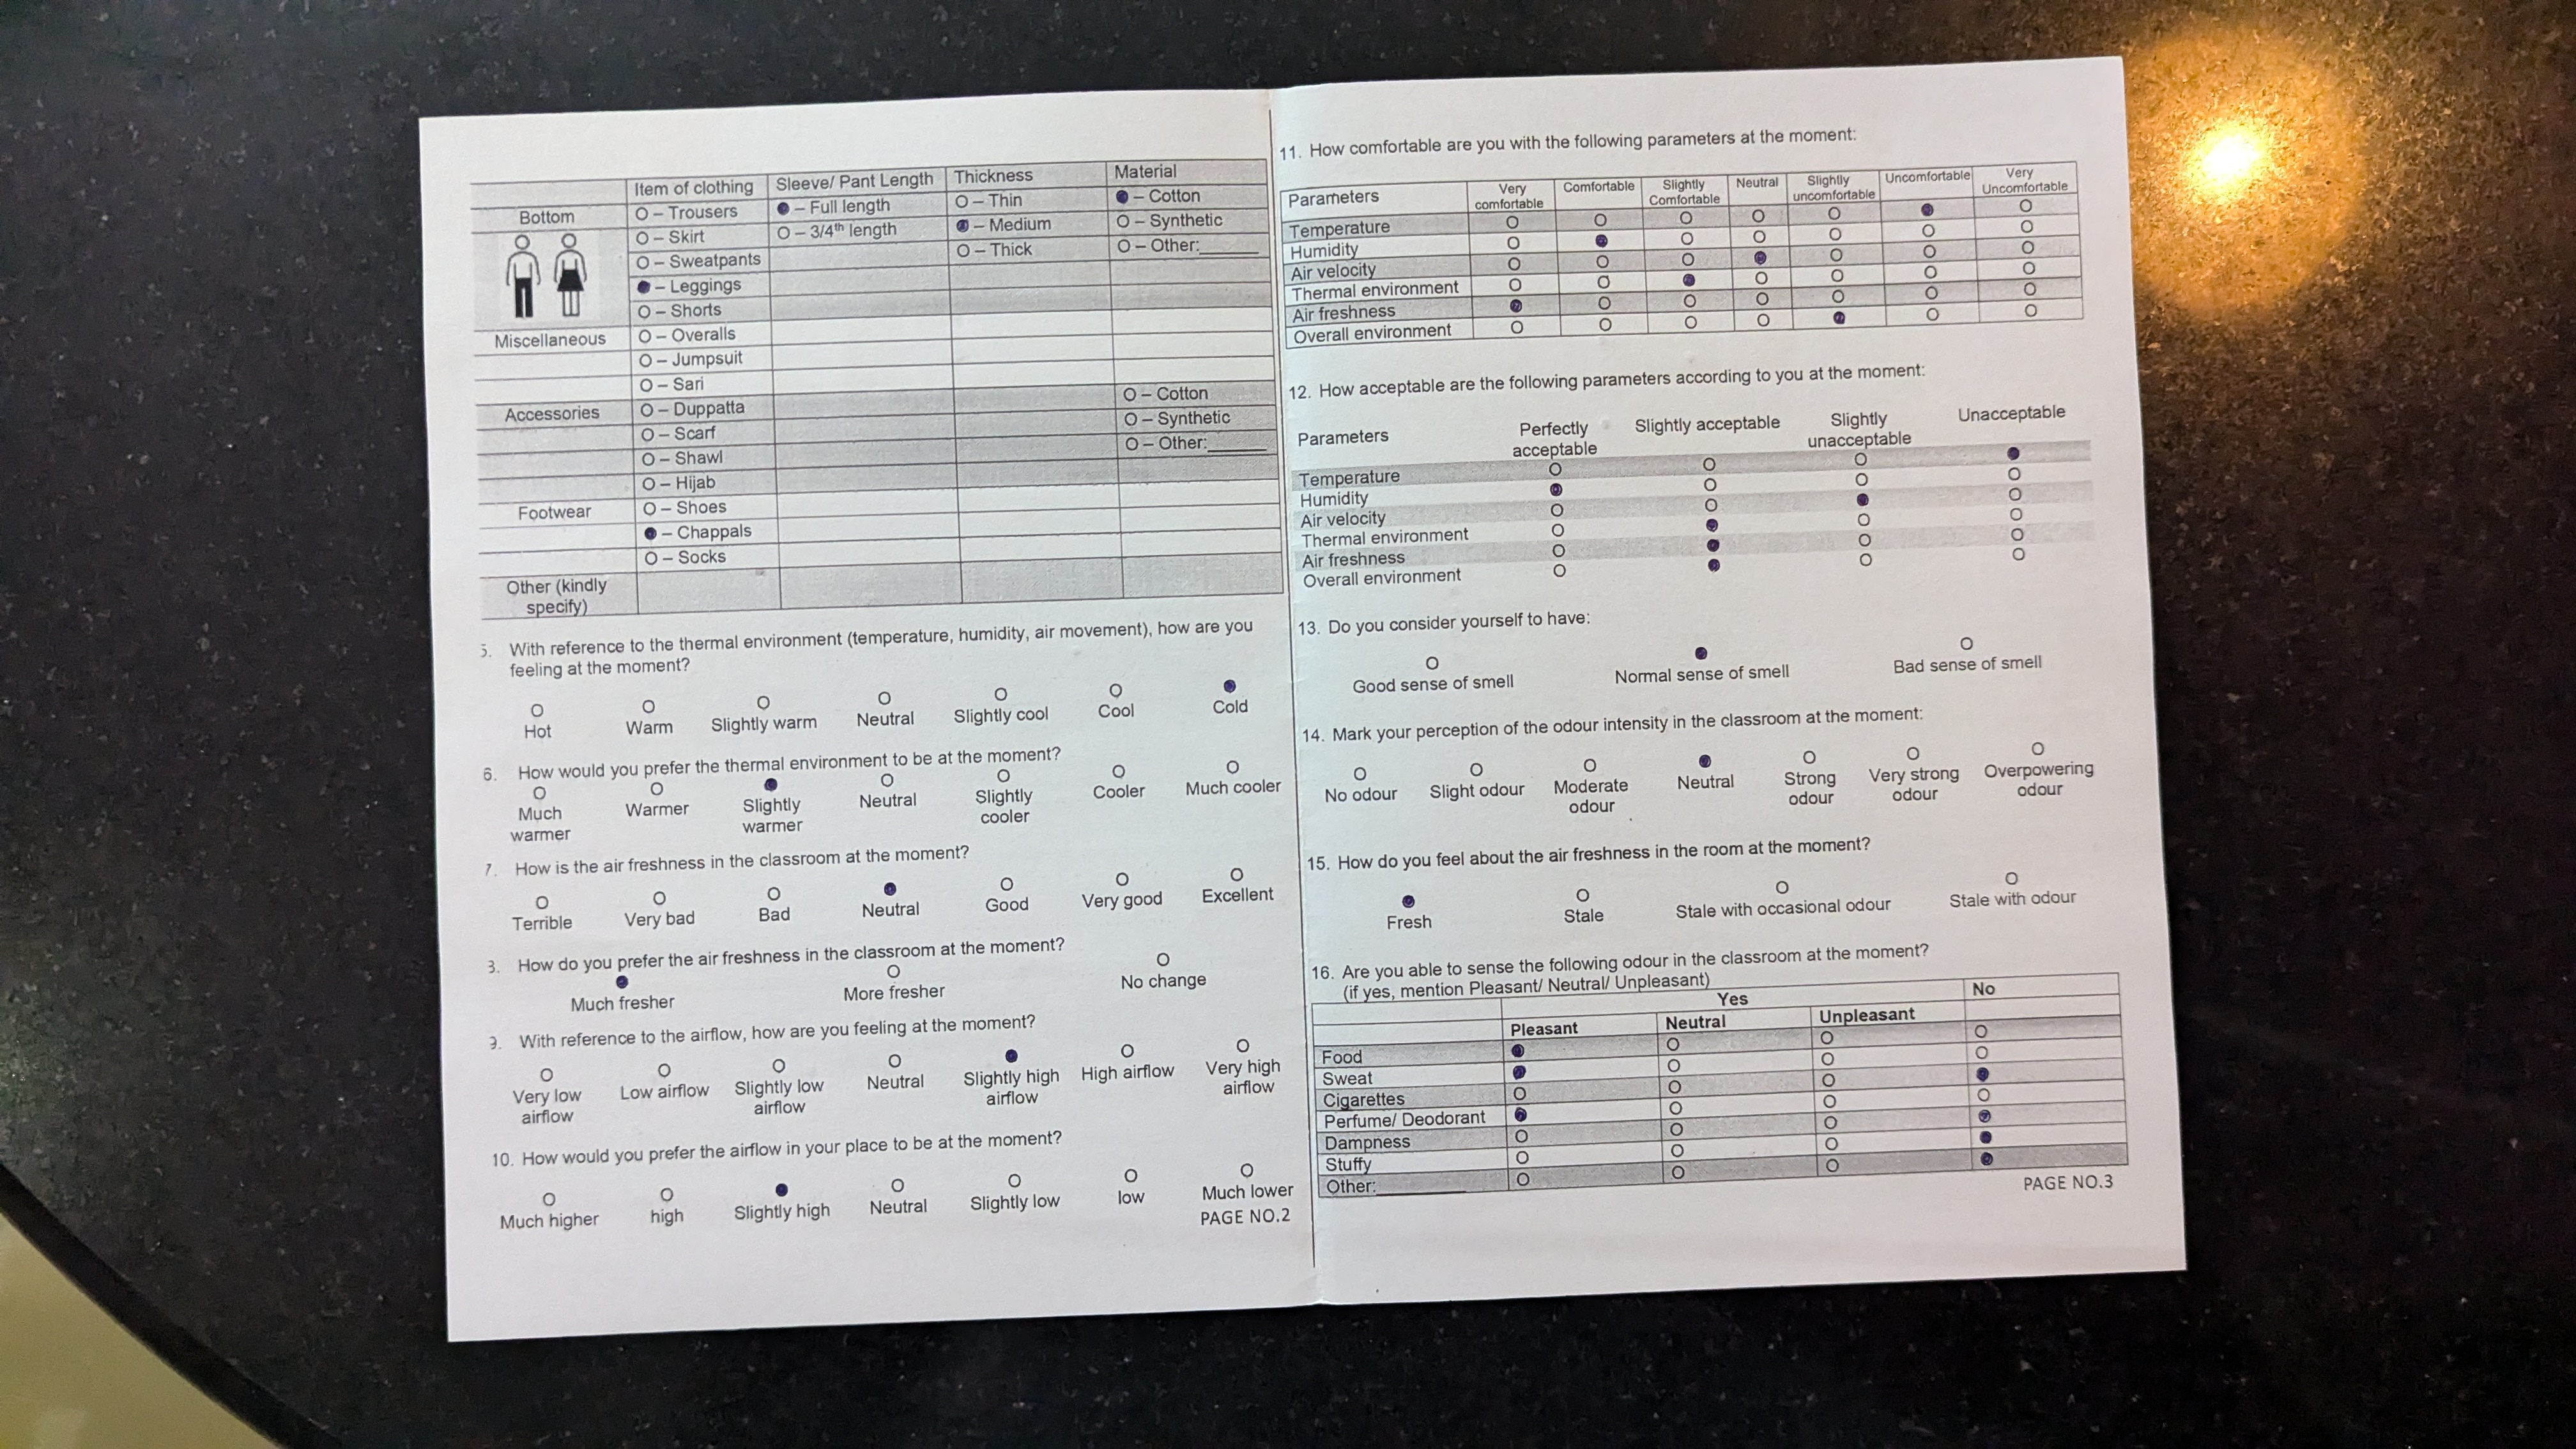 Item of clothing Sleeve/ Pant Length Thickness Material
Bottom O – Trousers ● – Full length O – Thin ● – Cotton
O – Skirt O – 3/4th length ● – Medium O – Synthetic
O – Sweatpants O – Thick O – Other:______
● – Leggings
O – Shorts
Miscellaneous O – Overalls
O – Jumpsuit
O – Sari
Accessories O – Duppatta O – Cotton
O – Scarf O – Synthetic
O – Shawl O – Other:______
O – Hijab
Footwear O – Shoes
● – Chappals
O – Socks
Other (kindly
specify)
5. With reference to the thermal environment (temperature, humidity, air movement), how are you
feeling at the moment?
O O O O O O ●
Hot Warm Slightly warm Neutral Slightly cool Cool Cold
6. How would you prefer the thermal environment to be at the moment?
O O ● O O O O
Much Warmer Slightly Neutral Slightly Cooler Much cooler
warmer warmer cooler
7. How is the air freshness in the classroom at the moment?
O O O ● O O O
Terrible Very bad Bad Neutral Good Very good Excellent
How do you prefer the air freshness in the classroom at the moment?
● O O
Much fresher More fresher No change
With reference to the airflow, how are you feeling at the moment?
O O O O ● O O
Very low Low airflow Slightly low Neutral Slightly high High airflow Very high
airflow airflow airflow airflow
10. How would you prefer the airflow in your place to be at the moment?
O O ● O O O O
Much higher high Slightly high Neutral Slightly low low Much lower
PAGE NO.2
11. How comfortable are you with the following parameters at the moment:
Parameters Very Comfortable Slightly Neutral Slightly Uncomfortable Very
comfortable Comfortable uncomfortable Uncomfortable
Temperature O O O O O ● O
Humidity O ● O O O O O
Air velocity O O O ● O O O
Thermal environment O O ● O O O O
Air freshness ● O O O O O O
Overall environment O O O O ● O O
12. How acceptable are the following parameters according to you at the moment:
Parameters Perfectly Slightly acceptable Slightly Unacceptable
acceptable unacceptable
Temperature O O O ●
Humidity ● O O O
Air velocity O O ● O
Thermal environment O ● O O
Air freshness O ● O O
Overall environment O ● O O
13. Do you consider yourself to have:
O ● O
Good sense of smell Normal sense of smell Bad sense of smell
14. Mark your perception of the odour intensity in the classroom at the moment:
O O O ● O O O
No odour Slight odour Moderate Neutral Strong Very strong Overpowering
odour odour odour odour
15. How do you feel about the air freshness in the room at the moment?
● O O O
Fresh Stale Stale with occasional odour Stale with odour
16. Are you able to sense the following odour in the classroom at the moment?
(if yes, mention Pleasant/ Neutral/ Unpleasant)
Yes No
Pleasant Neutral Unpleasant
Food ● O O O
Sweat ● O O O
Cigarettes O O O ●
Perfume/ Deodorant ● O O O
Dampness O O O ●
Stuffy O O O ●
Other:__________ O O O ●
PAGE NO.3